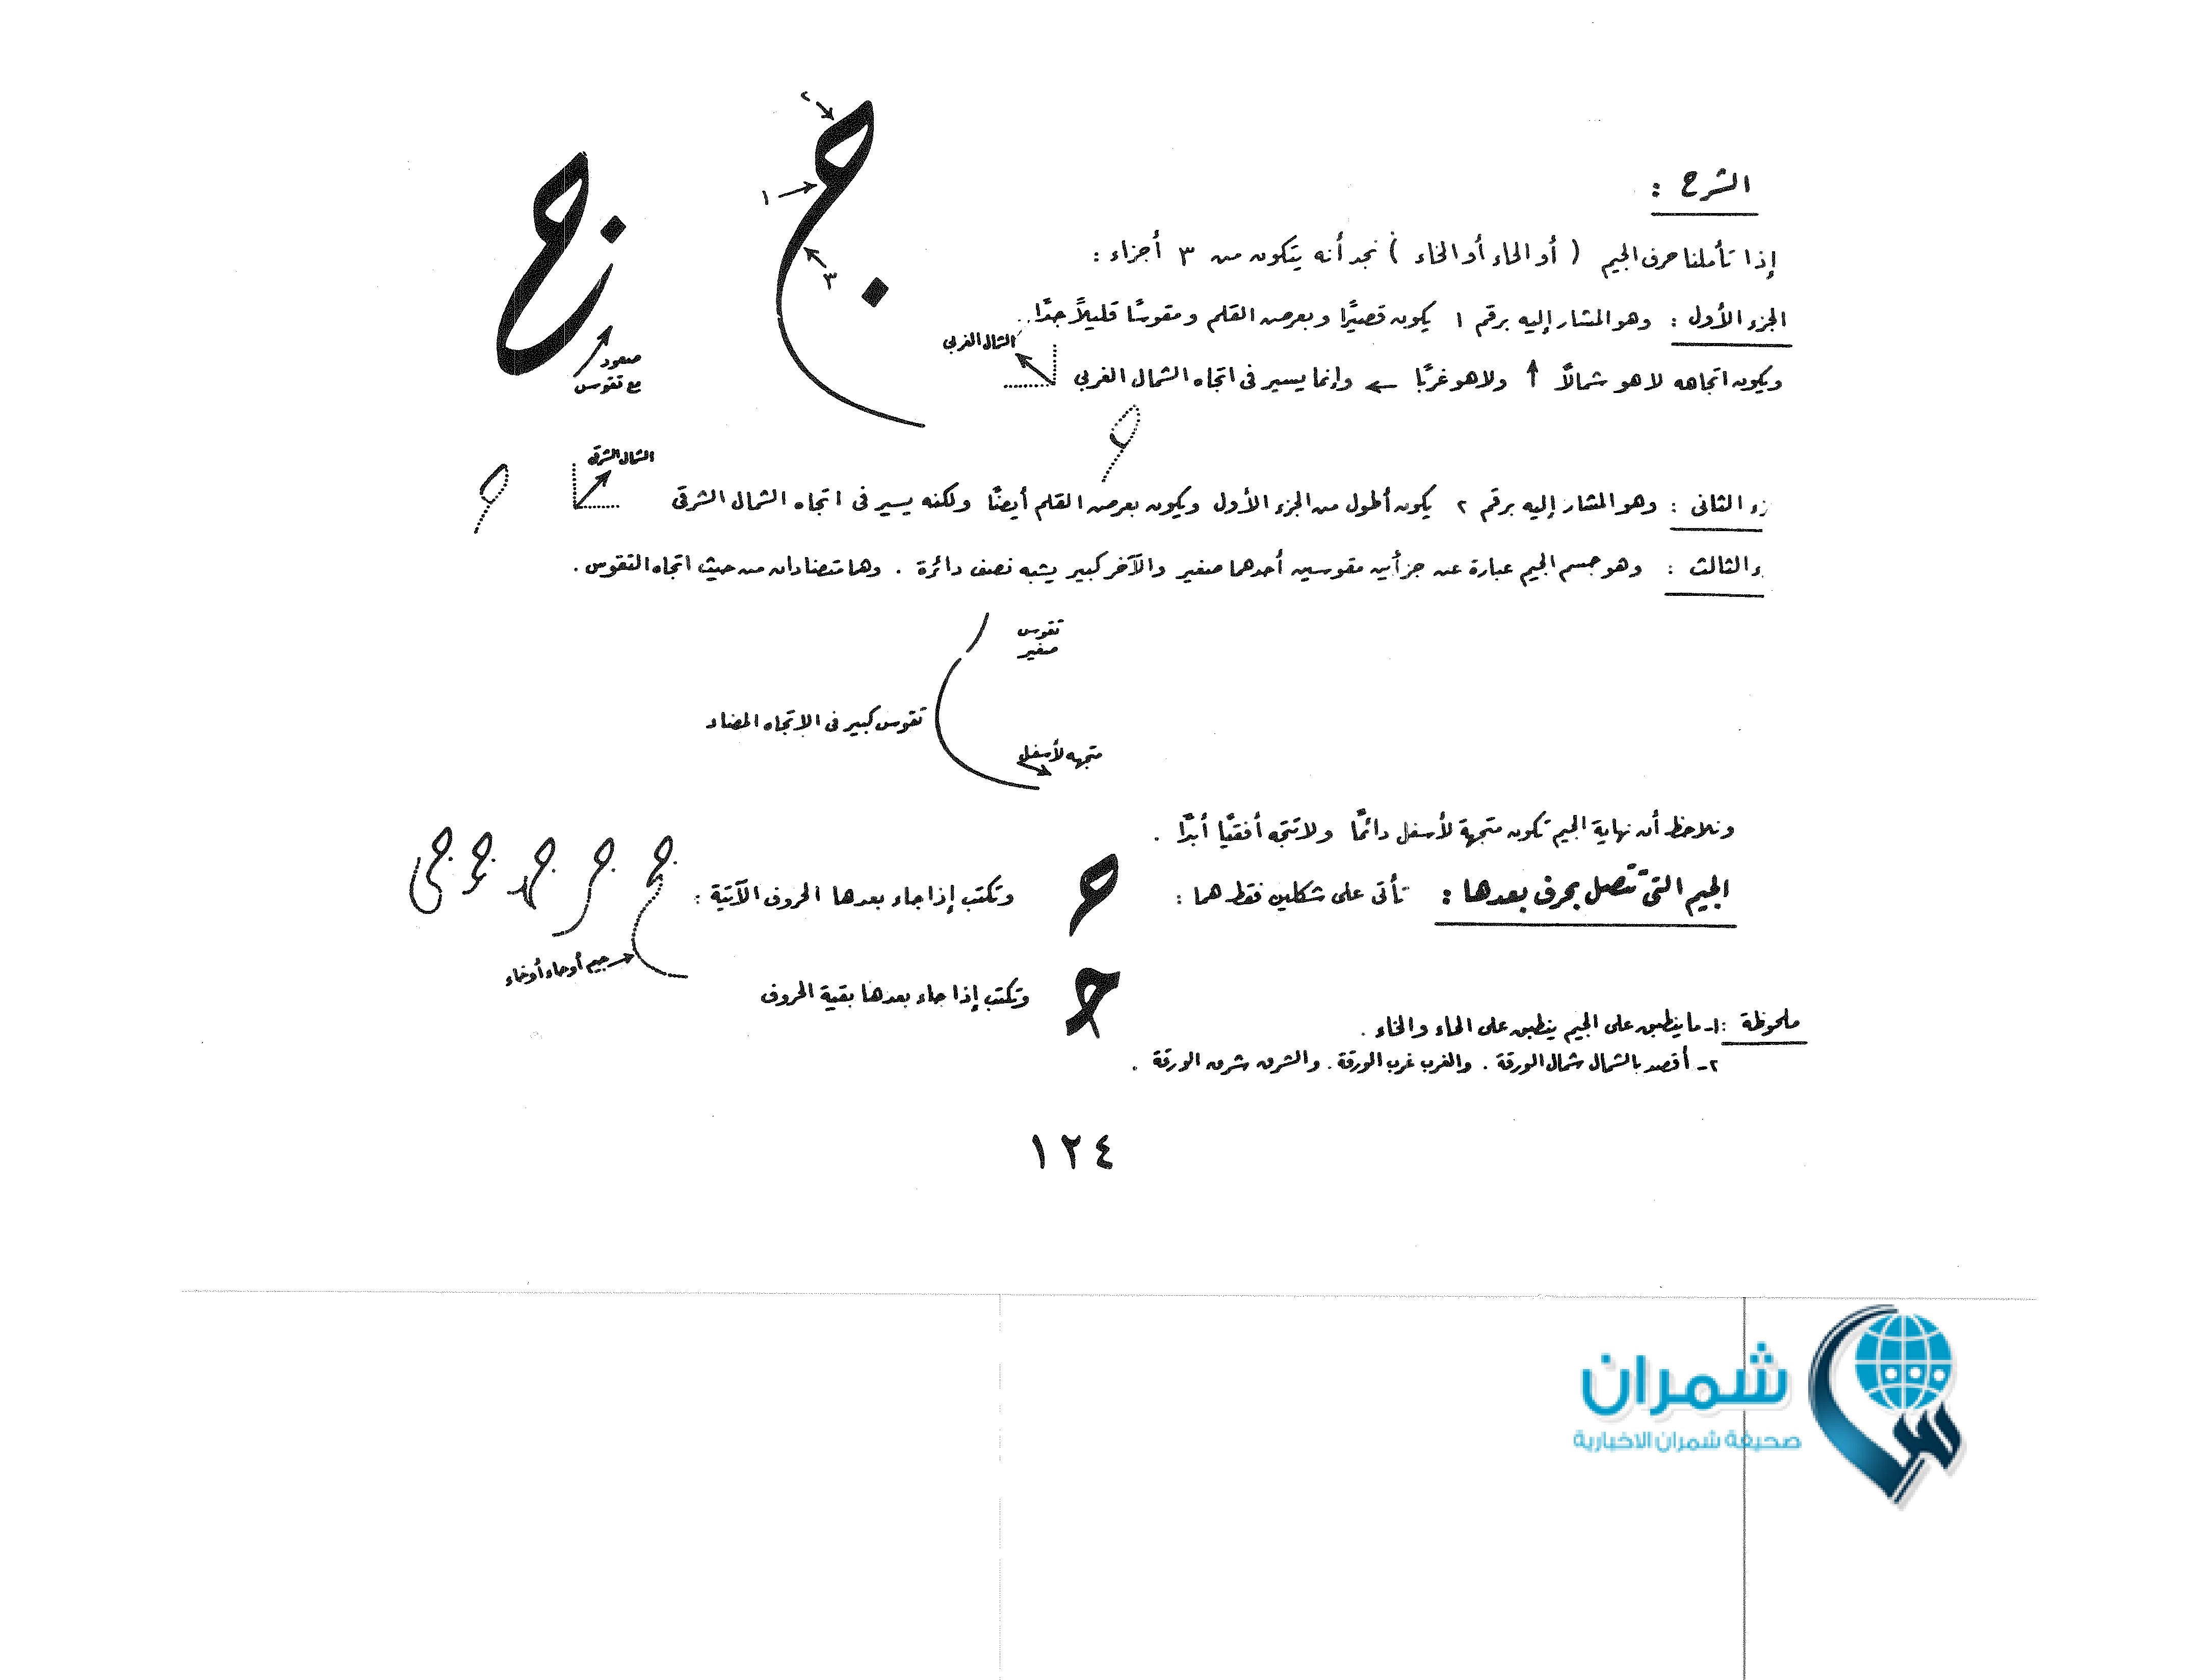 ٢
١
٣
صعود
مع تقوس
الشرح :
إذا تأملنا حرف الجيم ( أو الحاء أو الخاء ) نجد أنه يتكون من ٣ أجزاء :
الجزء الأول : وهو المشار إليه برقم ١ يكون قصيرًا وبعرض القلم ومقوسًا قليلاً جدًا
الشمال الغربي
ويكون اتجاهه لا هو شمالاً ↑ ولا هو غربًا ← وإنما يسير فى اتجاه الشمال الغربي
الشمال الشرقى
زء الثانى : وهو المشار إليه برقم ٢ يكون أطول من الجزء الأول ويكون بعرض القلم أيضًا ولكنه يسير فى اتجاه الشمال الشرقى
ء الثالث : وهو جسم الجيم عبارة عن جزأين مقوسين أحدهما صغير والآخر كبير يشبه نصف دائرة . وهما متضادان من حيث اتجاه التقوس .
تقوس
صغير
تقوس كبير فى الاتجاه المضاد
متجهه لأسفل
ونلاحظ أن نهاية الجيم تكون متجهة لأسفل دائمًا ولا تتجه أفقيًا أبدًا .
الجيم التى تتصل بحرف بعدها : تأتى على شكلين فقط هما :
وتكتب إذا جاء بعدها الحروف الآتية :
جيم أو حاء أو خاء
وتكتب إذا جاء بعدها بقية الحروف
ملحوظة : ١ـ ما ينطبق على الجيم ينطبق على الحاء والخاء .
٢ـ أقصد بالشمال شمال الورقة . والغرب غرب الورقة . والشرق شرق الورقة .
١٢٤
شمران
صحيفة شمران الاخبارية